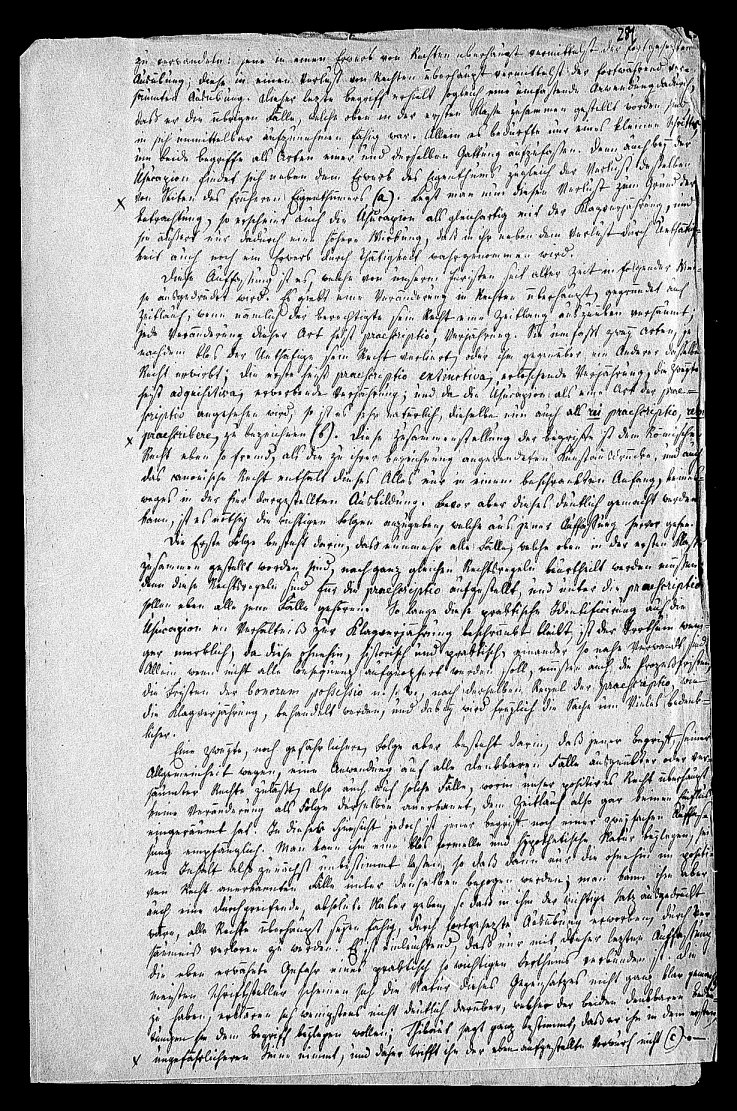 281
zu verwandeln: jene in einen Erwerb von Rechten überhaupt vermittelst der fortgesetzten
Ausübung, diese in einen Verlust von Rechten überhaupt vermittelst der fortwährend ver=
säumten Ausübung. Dieser letzte Begriff erhielt sogleich eine umfassende Anwendung dadurch,
daß er die übrigen Fälle, welche oben in der ersten Klasse zusammen gestellt worden sind
in sich unmittelbar aufzunehmen fähig war. Allein es bedurfte nur eines kleinen Schrittes
um beide Begriffe als Arten einer und derselben Gattung aufzufassen. Denn auch bey der
Usucapion findet sich neben dem Erwerb des Eigenthums zugleich der Verlust desselben
von Seiten des früheren Eigenthümers (a). Legt man nun diesen Verlust zum Grund der
Betrachtung, so erscheint auch die Usucapion als gleichartig mit der Klagverjährung, und
sie äußert nur dadurch eine höhere Wirkung, daß in ihr neben dem Verlust durch Unthätig=
keit auch noch ein Erwerb durch Thätigkeit wahrgenommen wird.
Diese Auffassung ist es, welche von unsern Juristen seit alter Zeit in folgender Wei=
se ausgedrückt wird. Es giebt eine Veränderung in Rechten überhaupt, gegründet auf
Zeitlauf, wenn nämlich der Berechtigte sein Recht eine Zeitlang auszuüben versäumt;
jede Veränderung dieser Art heißt praescriptio, Verjährung. Sie umfaßt zwey Arten, je
nachdem blos der Unthätige sein Recht verliert, oder ihm gegenüber ein Anderer dasselbe
Recht erwirbt; die erste heißt praescriptio extinctiva, erlöschende Verjährung, die zweyte
heißt adquisitiva, erwerbende Verjährung; und da die Usucapion als eine Art der prae=
scriptio angesehen wird, so ist es sehr natürlich, dieselbe nun auch als rei praescriptio, rem
praescribere, zu bezeichnen (b). Diese Zusammenstellung der Begriffe ist dem Römischen
Recht eben so fremd, als die zu ihrer Bezeichnung angewendeten Kunstausdrücke, und auch
das canonische Recht enthält dieses Alles nur in einem beschränkten Anfang, keines=
weges in der hier dargestellten Ausbildung. Bevor aber dieses deutlich gemacht werden
kann, ist es nöthig die wichtigen Folgen anzugeben, welche aus jener Auffassung hervor gehen.
Die Erste Folge besteht darin, daß nunmehr alle Fälle, welche oben in der ersten Klasse
zusammen gestellt worden sind, nach ganz gleichen Rechtsregeln beurtheilt werden müssen,
denn diese Rechtsregeln sind für die praescriptio aufgestellt, und unter die praescriptio
sollen eben alle jene Fälle gehören. So lange diese praktische Identificirung auf die
Usucapion im Verhältniß zur Klagverjährung beschränkt bleibt, ist der Irrthum weni=
ger merklich, da diese ohnehin, historisch und praktisch, einander so nahe verwandt sind
Allein wenn nicht alle Consequenz aufgeopfert werden soll, müssen auch die Prozeßfristen,
die Fristen der bonorum possessio u. s. w., nach derselben Regel der praescriptio, wie
die Klagverjährung, behandelt werden, und dabey wird freylich die Sache um Vieles bedenk=
licher.
Eine zweyte, noch gefährlichere Folge aber besteht darin, daß jener Begriff seiner
Allgemeinheit wegen, eine Anwendung auf alle denkbaren Fälle ausgeübter oder ver
säumter Rechte zuläßt, also auch auf solche Fälle, worin unser positives Recht überhaupt
keine Veränderung als Folge derselben anerkennt, dem Zeitlauf also gar keinen Einfluß
eingeräumt hat. In dieser Hinsicht jedoch ist jener Begriff noch einer zweyfachen Auffas=
sung empfänglich. Man kann ihm eine blos formelle und hypothetische Natur beylegen, sei
nen Inhalt also zunächst unbestimmt lassen, so daß dann nur die ohnehin im positi=
ven Recht anerkannten Fälle unter denselben bezogen werden; man kann ihm aber
auch eine durchgreifende, absolute Natur geben, so daß in ihm der wichtige Satz ausgedrückt
wäre, alle Rechte überhaupt seyen fähig, durch fortgesetzte Ausübung erworben, durch Ver
säumniß verloren zu werden. Es ist einleuchtend, daß nur mit dieser letzten Auffassung
die oben erwähnte Gefahr eines praktisch so wichtigen Irrthums verbunden ist. Die
meisten Schriftsteller scheinen sich die Natur dieses Gegensatzes nicht ganz klar gemacht
zu haben, erklären sich wenigstens nicht deutlich darüber, welche der beiden denkbaren Bedeu
tungen sie dem Begriff beylegen wollen; Thibaut sagt ganz bestimmt, daß er ihn in dem ersten,
ungefährlicheren Sinne nimmt, und daher trifft ihn der eben aufgestellte Vorwurf nicht (c). —